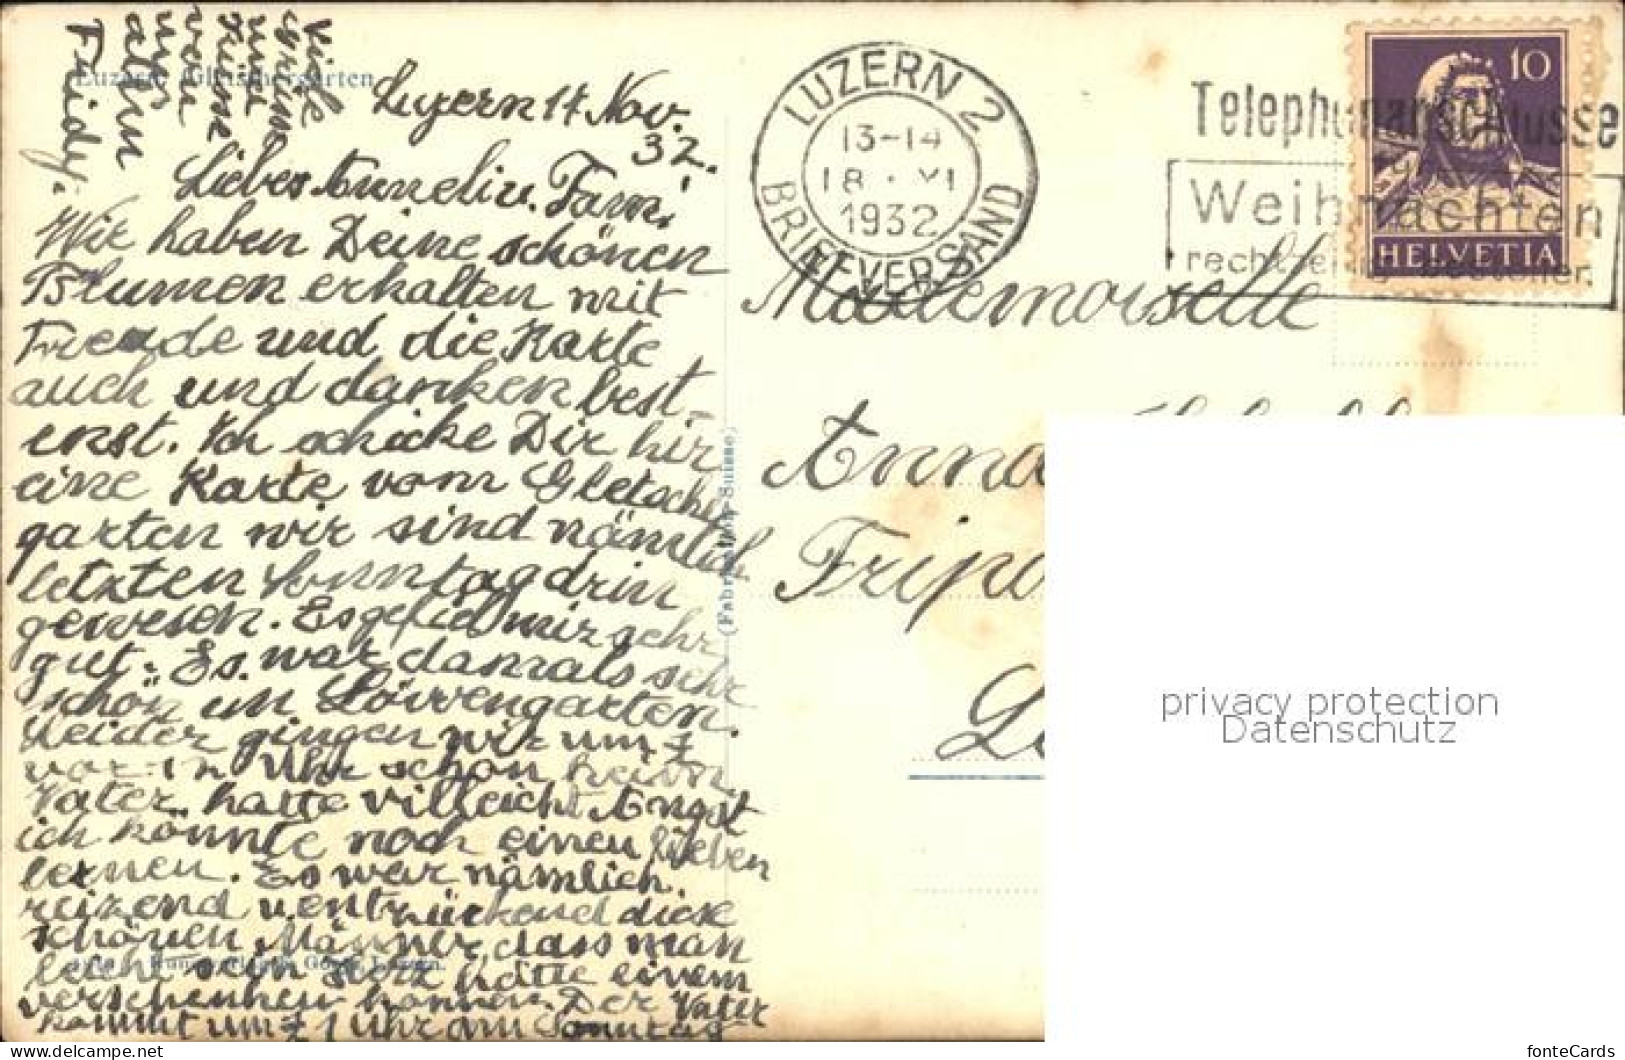 Viele
Grüsse
und
Küsse
von
uns
allen
Fridy.
Luzern. Gletschergarten
Luzern 17 Nov.
32.
Liebes Annely u. Fam!
Wir haben Deine schönen
Blumen erhalten mit
Freude und die Karte
auch und danken best-
enst. Ich schicke Dir hir
eine Karte vom Gletscher
garten wir sind nämlich
letzten Sonntag drin
gewesen. Es gefiel mir sehr
gut. Es war damals sehr
schön im Löwengarten.
Leider gingen wir um
vor 12 Uhr schon heim
Vater hatte villeicht Angst
ich könnte noch einen lieben
lernen. Es war nämlich
reizend u entzückend diese
schönen Männer, dass man
leicht sein Herz hätte einem
verschenken können. Der Vater
kommt um 1 Uhr am Sonntag
LUZERN 2
13-14
18.XI
1932
BRIEFVERSAND
Telephonanschlüsse
Weihnachten
10
HELVETIA
Mademoiselle
Anna
(Fabrication Suisse)
privacy protection
Datenschutz
fonteCards